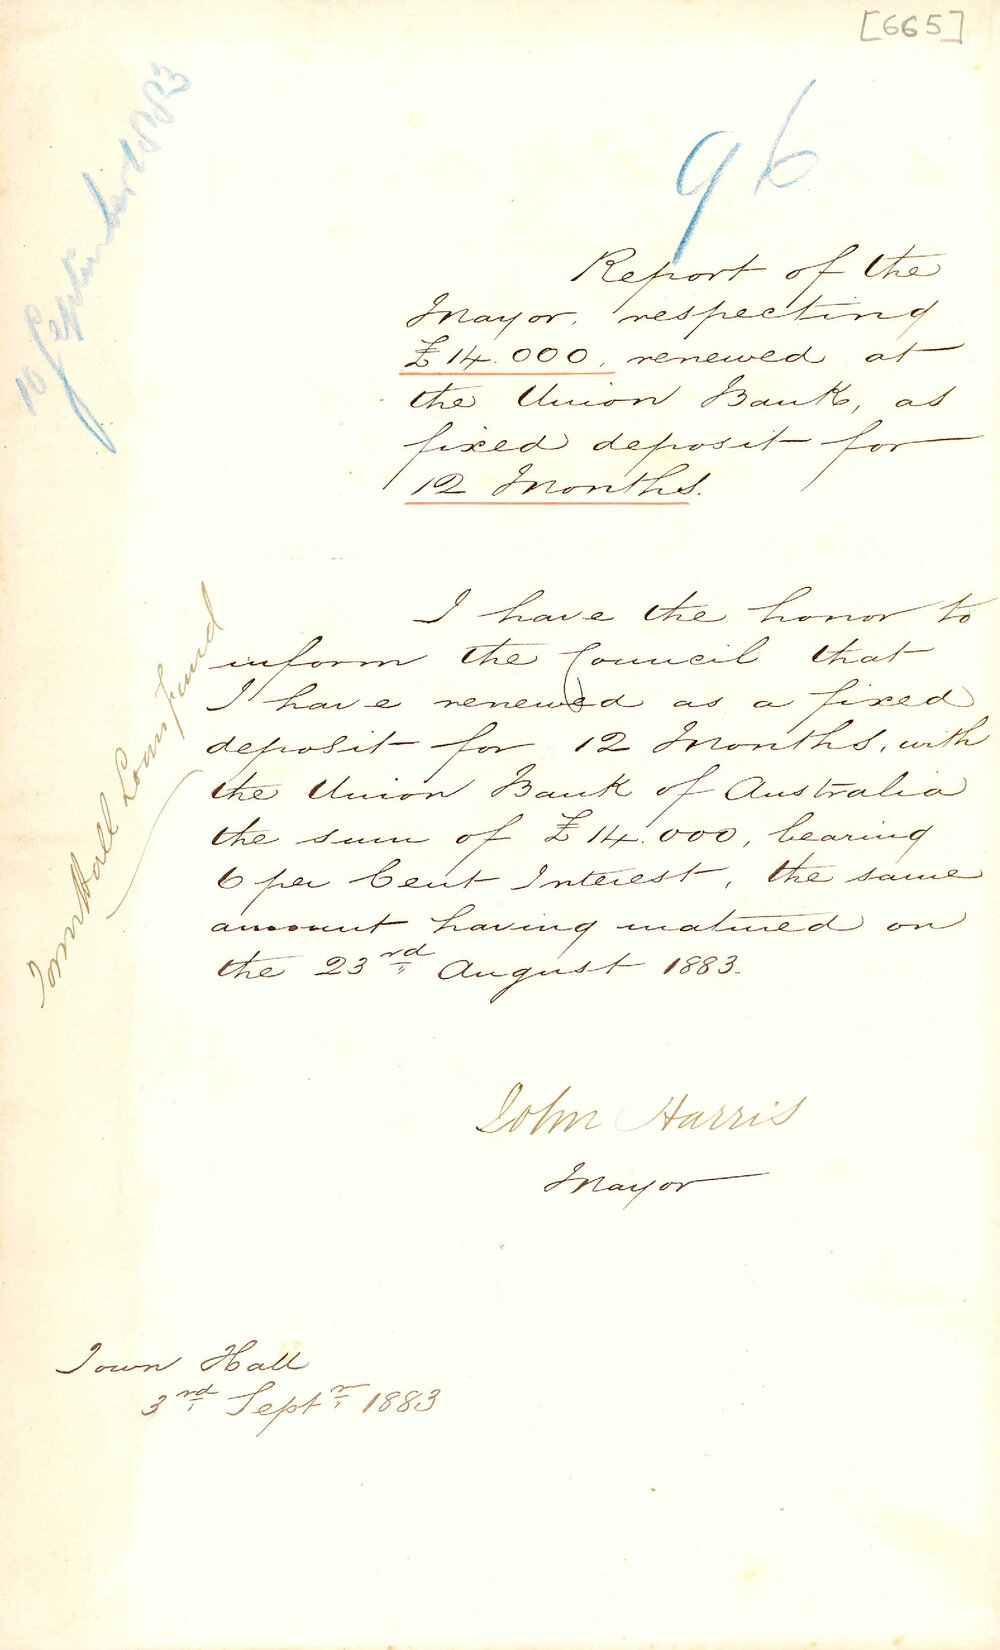 [665]
10 September 1883
96
Report of the
Mayor, respecting
£14.000, renewed at
the Union Bank, as
fixed deposit for
12 Months.
I have the honor to
inform the Council that
I have renewed as a fixed
deposit for 12 Months, with
the Union Bank of Australia
the sum of £14.000, bearing
6 per Cent Interest, the same
amount having matured on
the 23rd August 1883.
Town Hall Loan fund
John Harris
Mayor
Town Hall
3rd Septr 1883